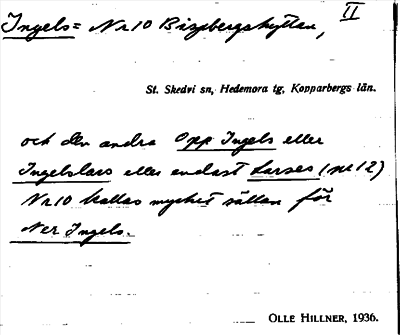 Ingels= Nr 10 Bispbergshyttan, II
St. Skedvi sn, Hedemora tg, Kopparbergs län.
och den andra Opp Ingels eller
Ingelslars eller endast Larses (nr 12)
Nr 10 kallas mycket sällan för
Ner Ingels.
OLLE HILLNER, 1936.